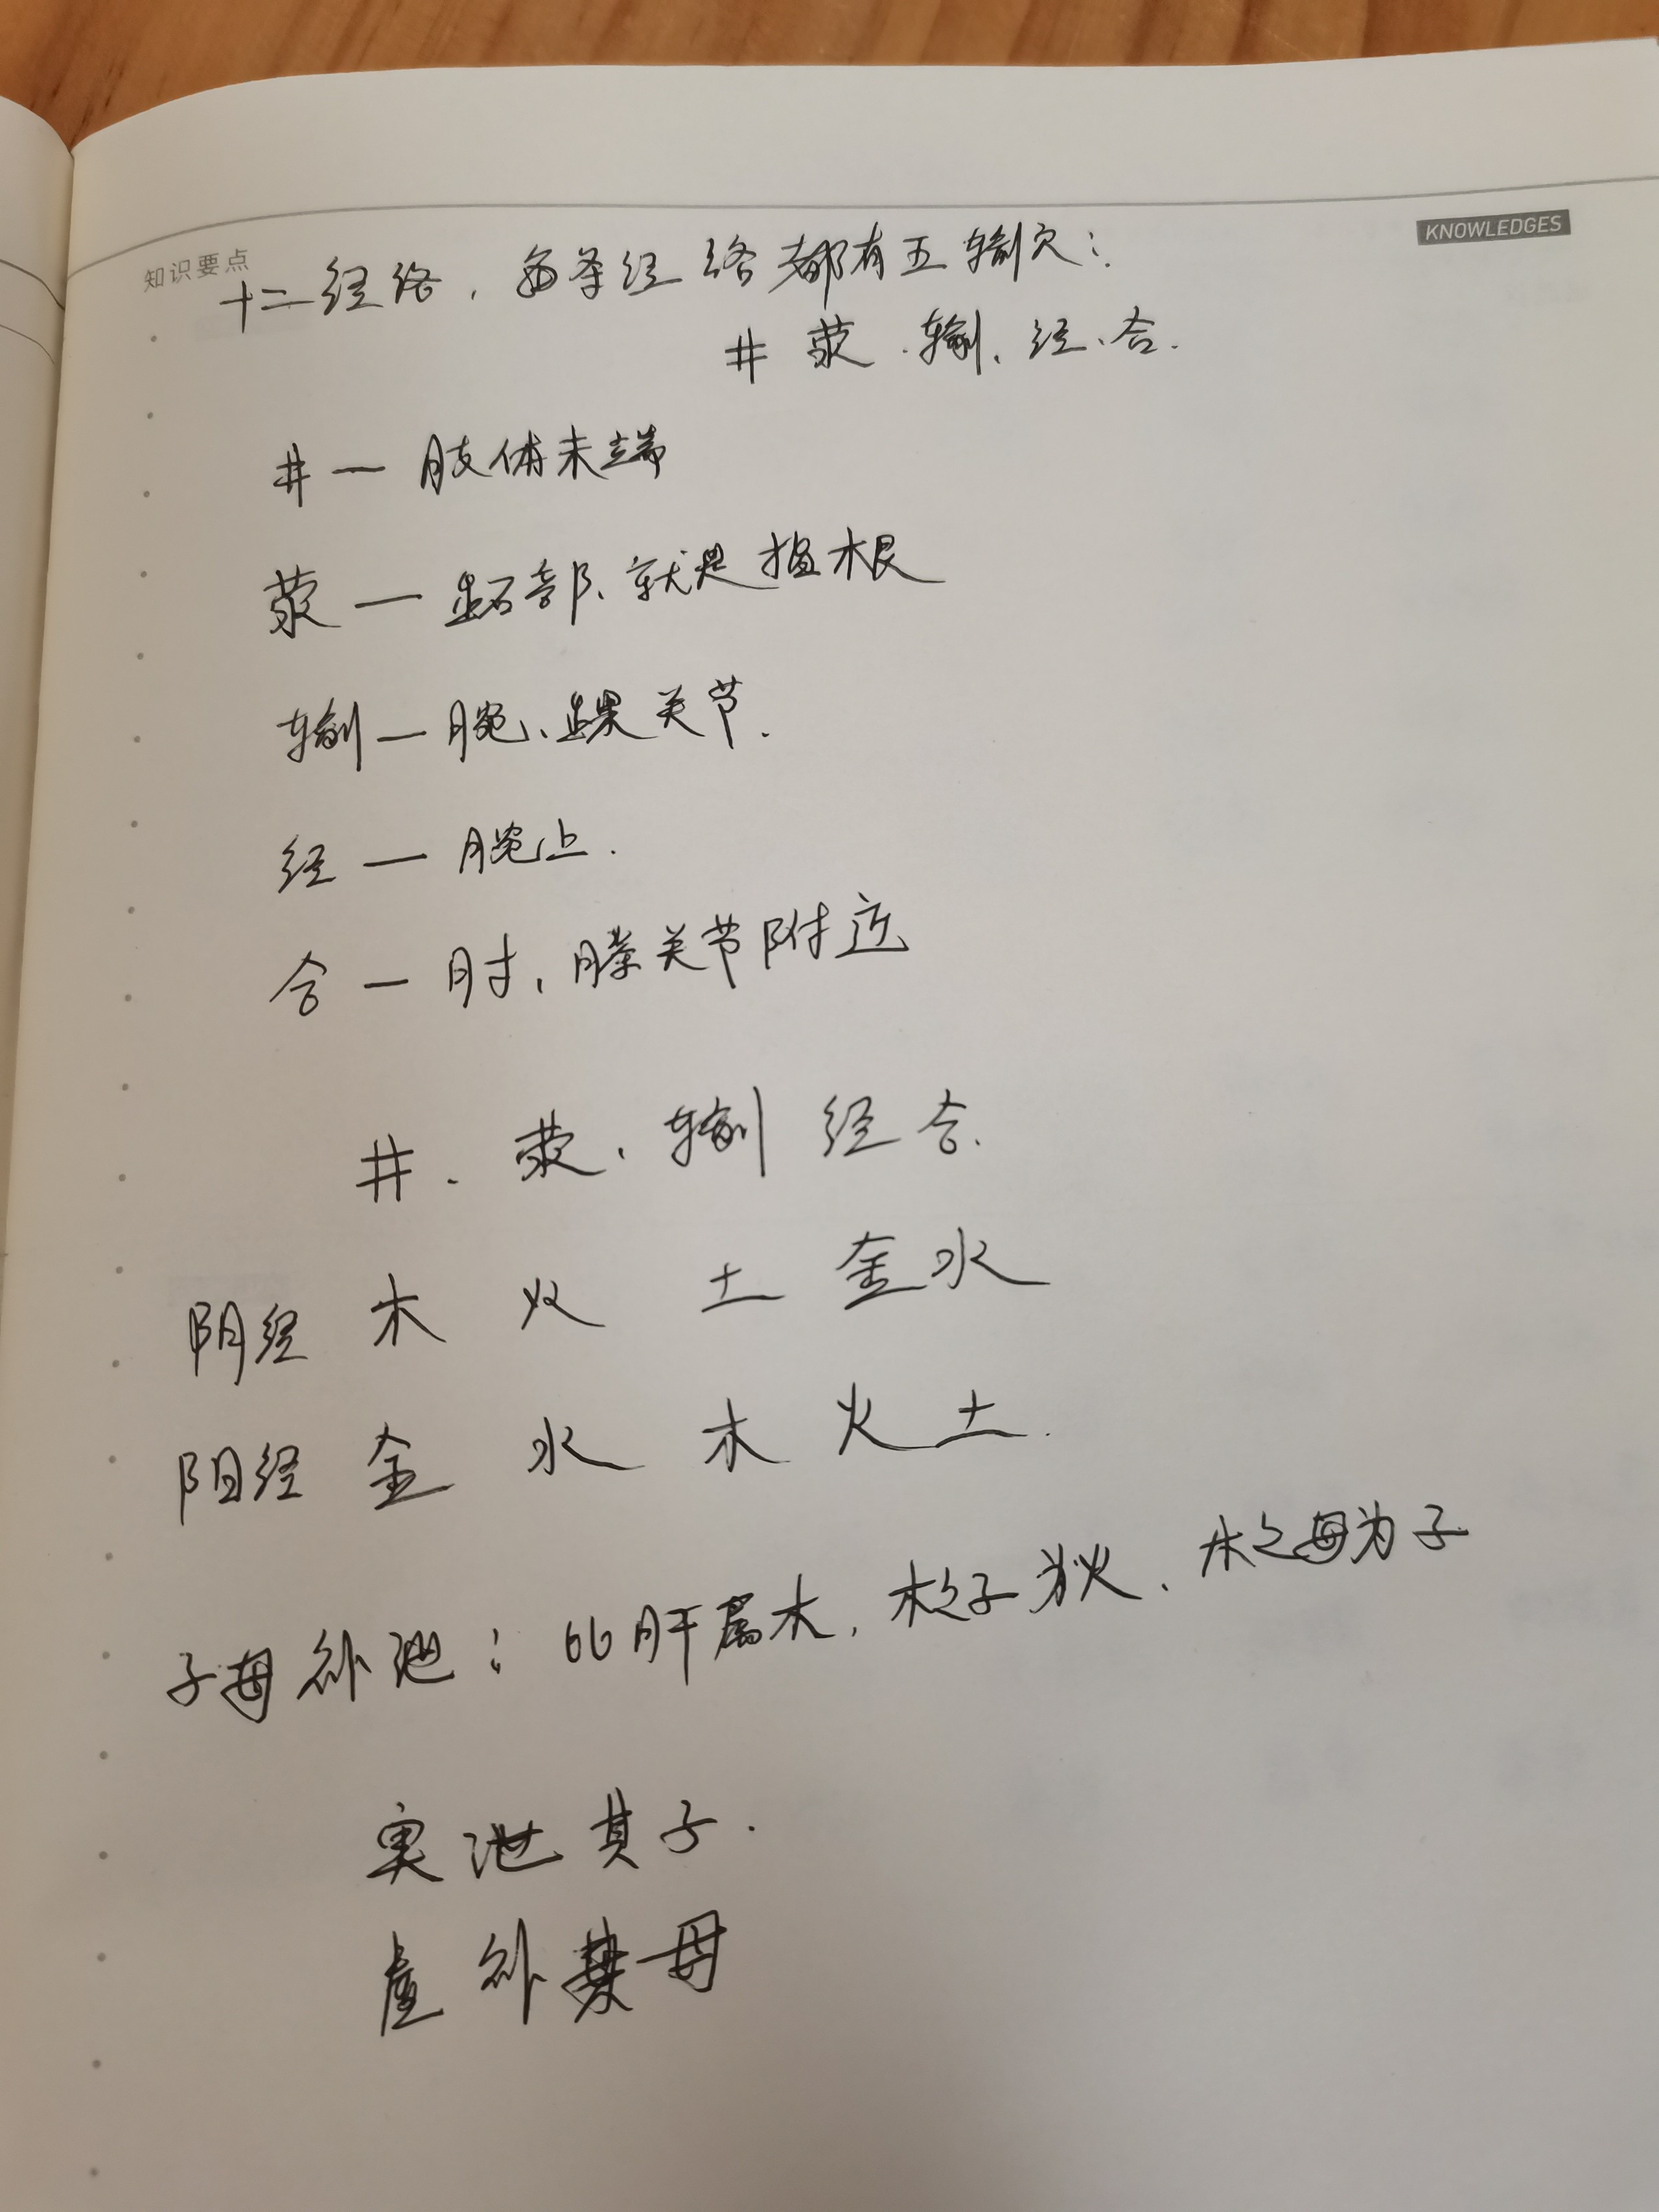 知识要点
KNOWLEDGES
十二经络，每条经络都有五输穴：
井 荥、输、经、合.
井 — 肢体末端
荥 — 跖部、就是掴根
输 — 腕、踝关节.
经 — 腕上.
合 — 肘、膝关节附近
井、荥、输 经 合.
阴经 木 火 土 金 水
阳经 金 水 木 火 土.
子母补泄：比肝属木，木之子为火、木之母为子
实泄其子.
虚补其母